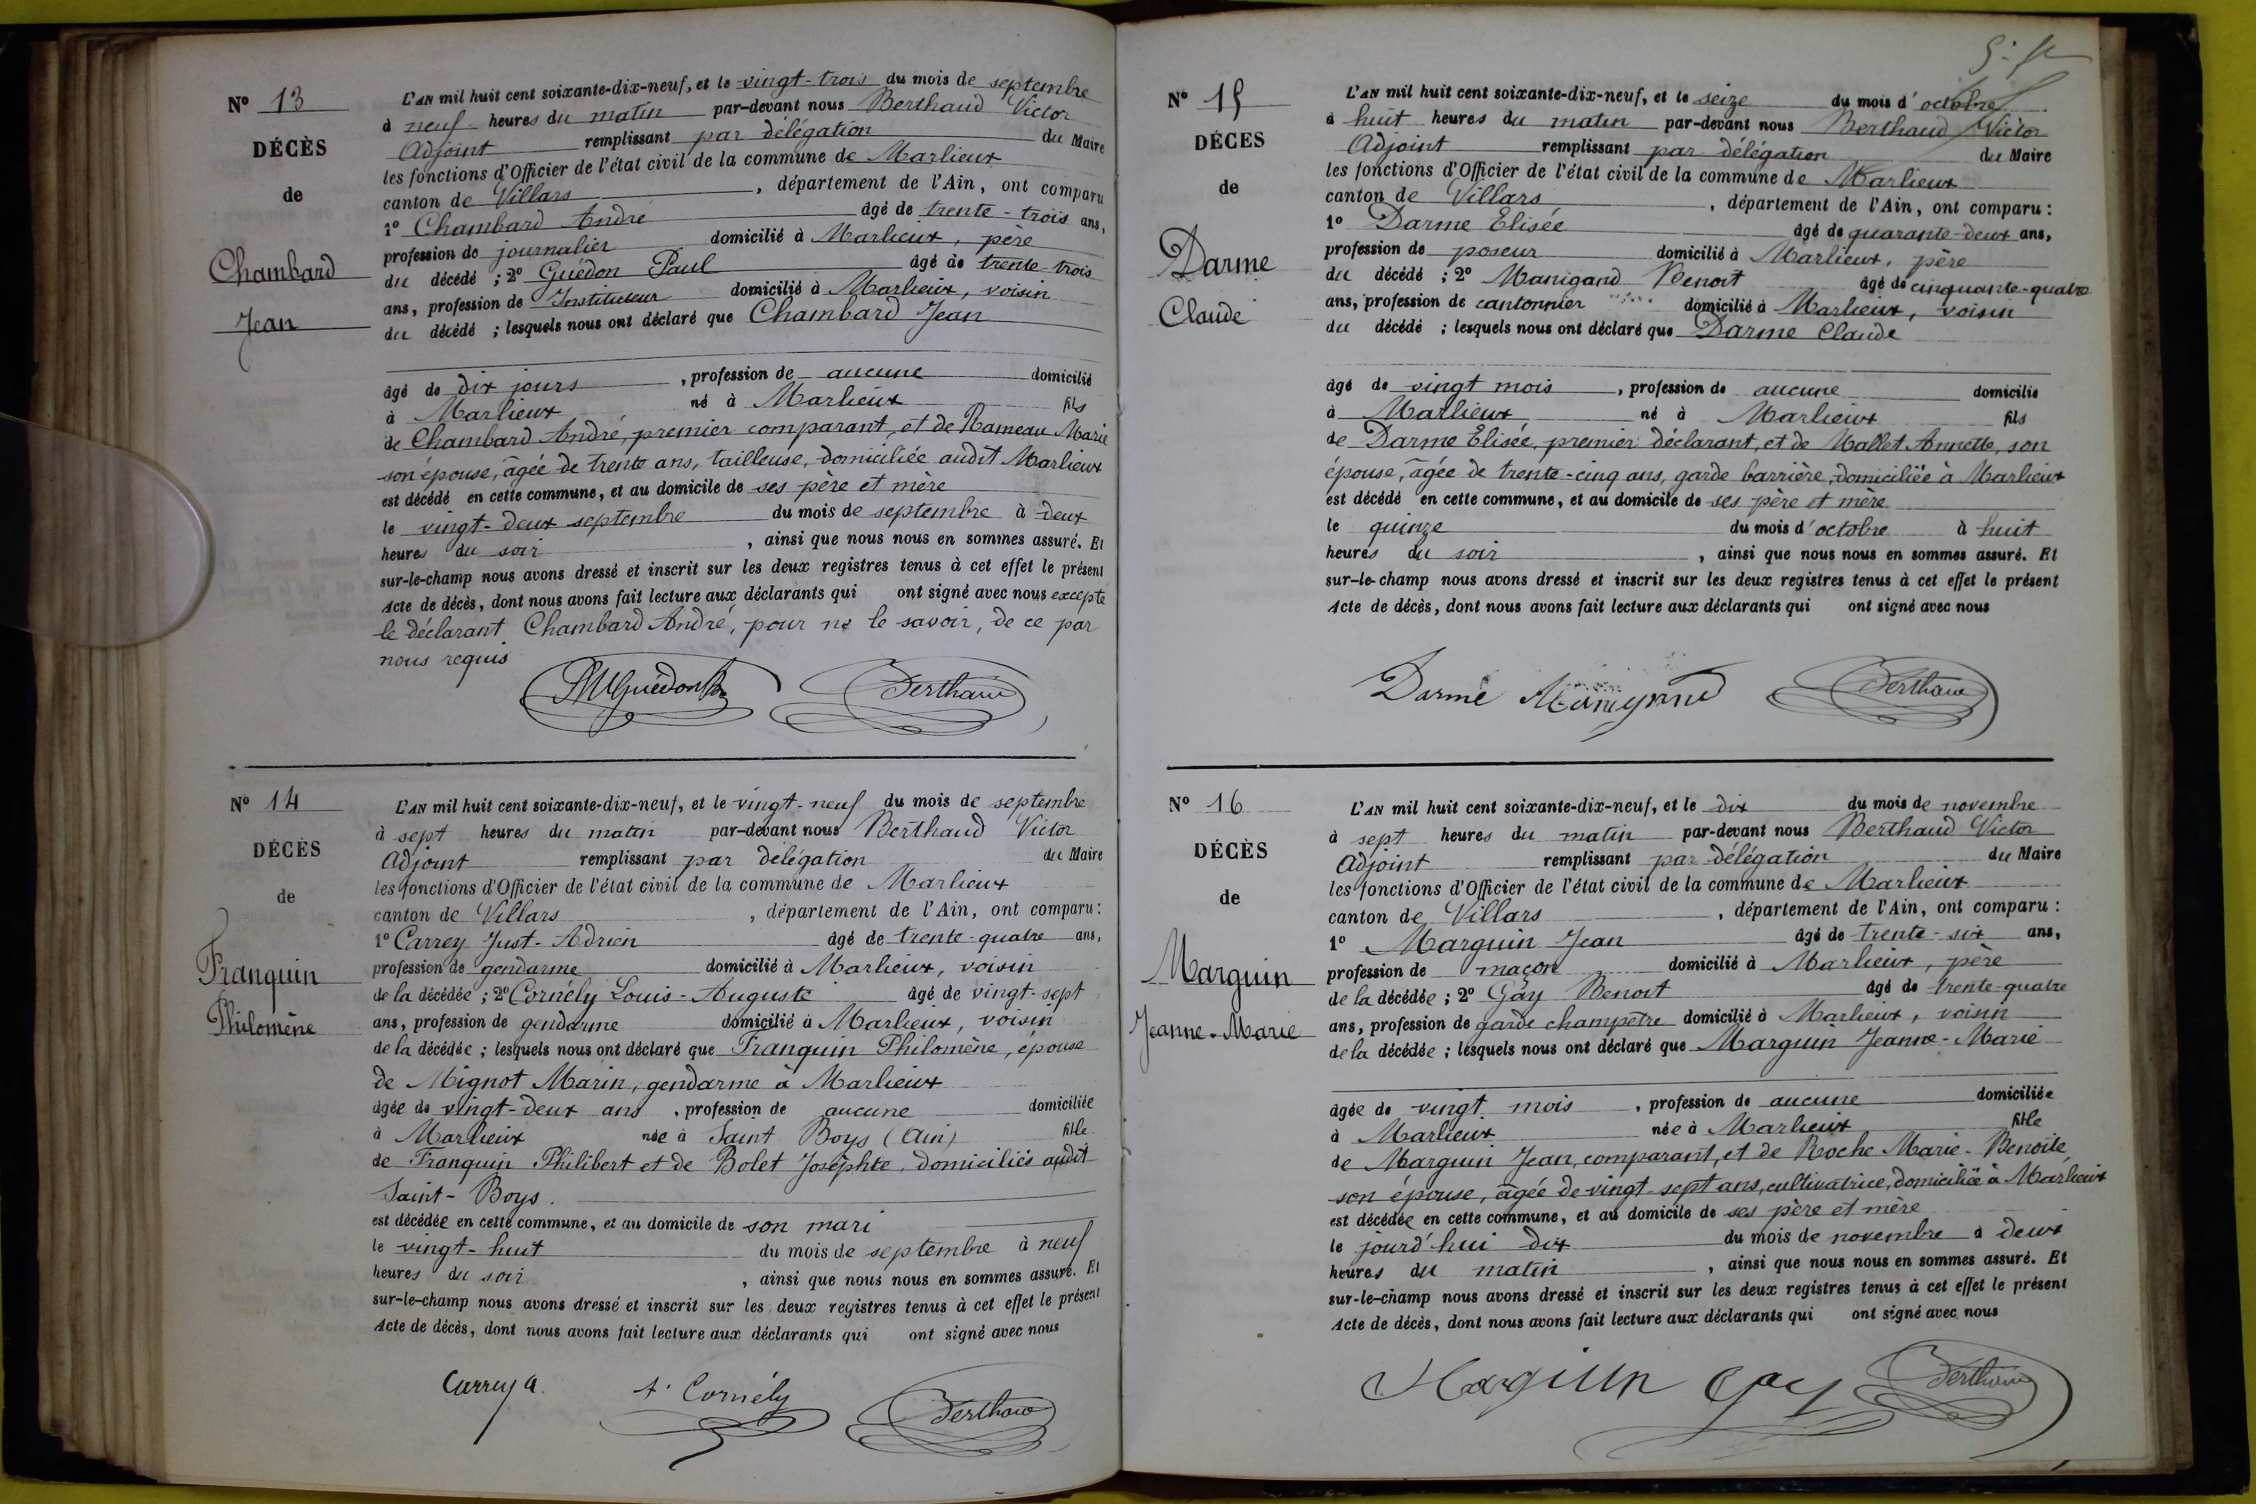 N° 13
DÉCÈS
de
Chambard
Jean
L'AN mil huit cent soixante-dix-neuf, et le vingt-trois du mois de septembre
à neuf heures du matin par-devant nous Berthaud Victor
Adjoint remplissant par délégation du Maire
les fonctions d'Officier de l'état civil de la commune de Marlieux
canton de Villars, département de l'Ain, ont comparu
1° Chambard André âgé de trente-trois ans,
profession de journalier domicilié à Marlieux, père
du décédé ; 2° Guédon Paul âgé de trente-trois
ans, profession de Instituteur domicilié à Marlieux, voisin
du décédé ; lesquels nous ont déclaré que Chambard Jean
âgé de dix jours, profession de aucune domicilié
à Marlieux né à Marlieux fils
de Chambard André, premier comparant, et de Rameau Marie
son épouse, âgée de trente ans, tailleuse, domiciliée audit Marlieux
est décédé en cette commune, et au domicile de ses père et mère
le vingt-deux septembre du mois de septembre à deux
heures du soir, ainsi que nous nous en sommes assuré. Et
sur-le-champ nous avons dressé et inscrit sur les deux registres tenus à cet effet le présent
Acte de décès, dont nous avons fait lecture aux déclarants qui ont signé avec nous excepté
le déclarant Chambard André, pour ne le savoir, de ce par
nous requis
Guédon Berthaud
N° 14
DÉCÈS
de
Franquin
Philomène
L'AN mil huit cent soixante-dix-neuf, et le vingt-neuf du mois de septembre
à sept heures du matin par-devant nous Berthaud Victor
Adjoint remplissant par délégation du Maire
les fonctions d'Officier de l'état civil de la commune de Marlieux
canton de Villars, département de l'Ain, ont comparu :
1° Carrey Just-Adrien âgé de trente-quatre ans,
profession de gendarme domicilié à Marlieux, voisin
de la décédée ; 2° Cornély Louis-Auguste âgé de vingt-sept
ans, profession de gendarme domicilié à Marlieux, voisin
de la décédée ; lesquels nous ont déclaré que Franquin Philomène, épouse
de Mignot Marin, gendarme à Marlieux
âgée de vingt-deux ans, profession de aucune domiciliée
à Marlieux née à Saint Boys (Ain) fille
de Franquin Philibert et de Bolet Josephte, domiciliés audit
Saint-Boys.
est décédée en cette commune, et au domicile de son mari
le vingt-huit du mois de septembre à neuf
heures du soir, ainsi que nous nous en sommes assuré. Et
sur-le-champ nous avons dressé et inscrit sur les deux registres tenus à cet effet le présent
Acte de décès, dont nous avons fait lecture aux déclarants qui ont signé avec nous
Carrey A. A. Cornély Berthaud
N° 15
DÉCÈS
de
Darme
Claude
L'AN mil huit cent soixante-dix-neuf, et le seize du mois d'octobre
à huit heures du matin par-devant nous Berthaud Victor
Adjoint remplissant par délégation du Maire
les fonctions d'Officier de l'état civil de la commune de Marlieux
canton de Villars, département de l'Ain, ont comparu :
1° Darme Elisée âgé de quarante-deux ans,
profession de poseur domicilié à Marlieux, père
du décédé ; 2° Manigand Benoit âgé de cinquante-quatre
ans, profession de cantonnier domicilié à Marlieux, voisin
du décédé ; lesquels nous ont déclaré que Darme Claude
âgé de vingt mois, profession de aucune domicilié
à Marlieux né à Marlieux fils
de Darme Elisée, premier déclarant, et de Mallet Annette, son
épouse, âgée de trente-cinq ans, garde barrière, domiciliée à Marlieux
est décédé en cette commune, et au domicile de ses père et mère
le quinze du mois d'octobre à huit
heures du soir, ainsi que nous nous en sommes assuré. Et
sur-le-champ nous avons dressé et inscrit sur les deux registres tenus à cet effet le présent
Acte de décès, dont nous avons fait lecture aux déclarants qui ont signé avec nous
Darme Manigand Berthaud
N° 16
DÉCÈS
de
Marguin
Jeanne-Marie
L'AN mil huit cent soixante-dix-neuf, et le dix du mois de novembre
à sept heures du matin par-devant nous Berthaud Victor
Adjoint remplissant par délégation du Maire
les fonctions d'Officier de l'état civil de la commune de Marlieux
canton de Villars, département de l'Ain, ont comparu :
1° Marguin Jean âgé de trente-six ans,
profession de maçon domicilié à Marlieux, père
de la décédée ; 2° Gay Benoit âgé de trente-quatre
ans, profession de garde champêtre domicilié à Marlieux, voisin
de la décédée ; lesquels nous ont déclaré que Marguin Jeanne-Marie
âgée de vingt mois, profession de aucune domiciliée
à Marlieux née à Marlieux fille
de Marguin Jean, comparant, et de Roche Marie-Benoite,
son épouse, âgée de vingt-sept ans, cultivatrice, domiciliée à Marlieux
est décédée en cette commune, et au domicile de ses père et mère
le jourd'hui dix du mois de novembre à deux
heures du matin, ainsi que nous nous en sommes assuré. Et
sur-le-champ nous avons dressé et inscrit sur les deux registres tenus à cet effet le présent
Acte de décès, dont nous avons fait lecture aux déclarants qui ont signé avec nous
Marguin Gay Berthaud